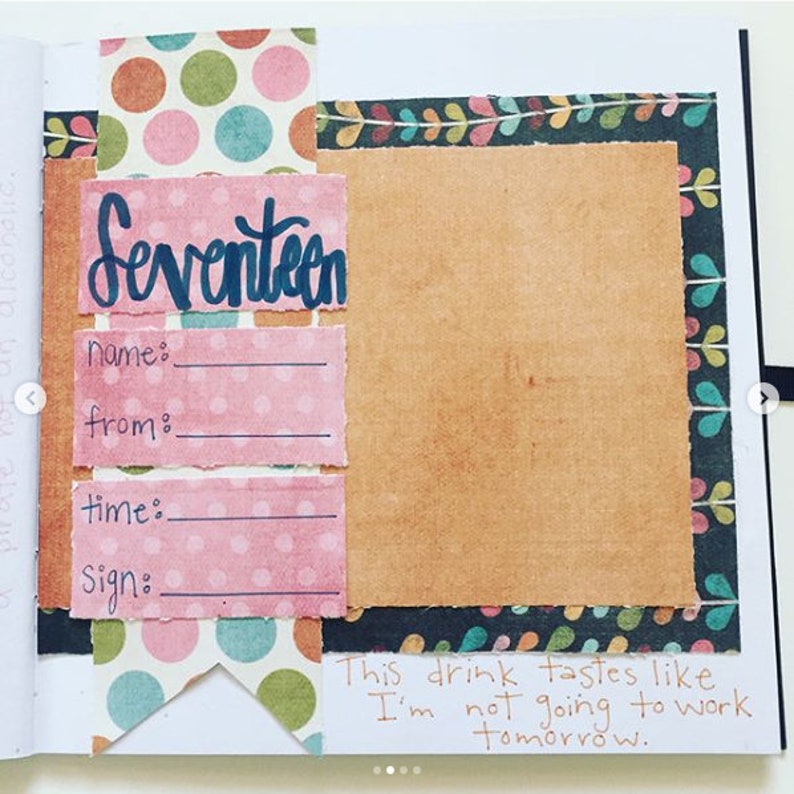 a pirate not an alcoholic.
Seventeen
name:
from:
time:
sign:
This drink tastes like
I'm not going to work
tomorrow.